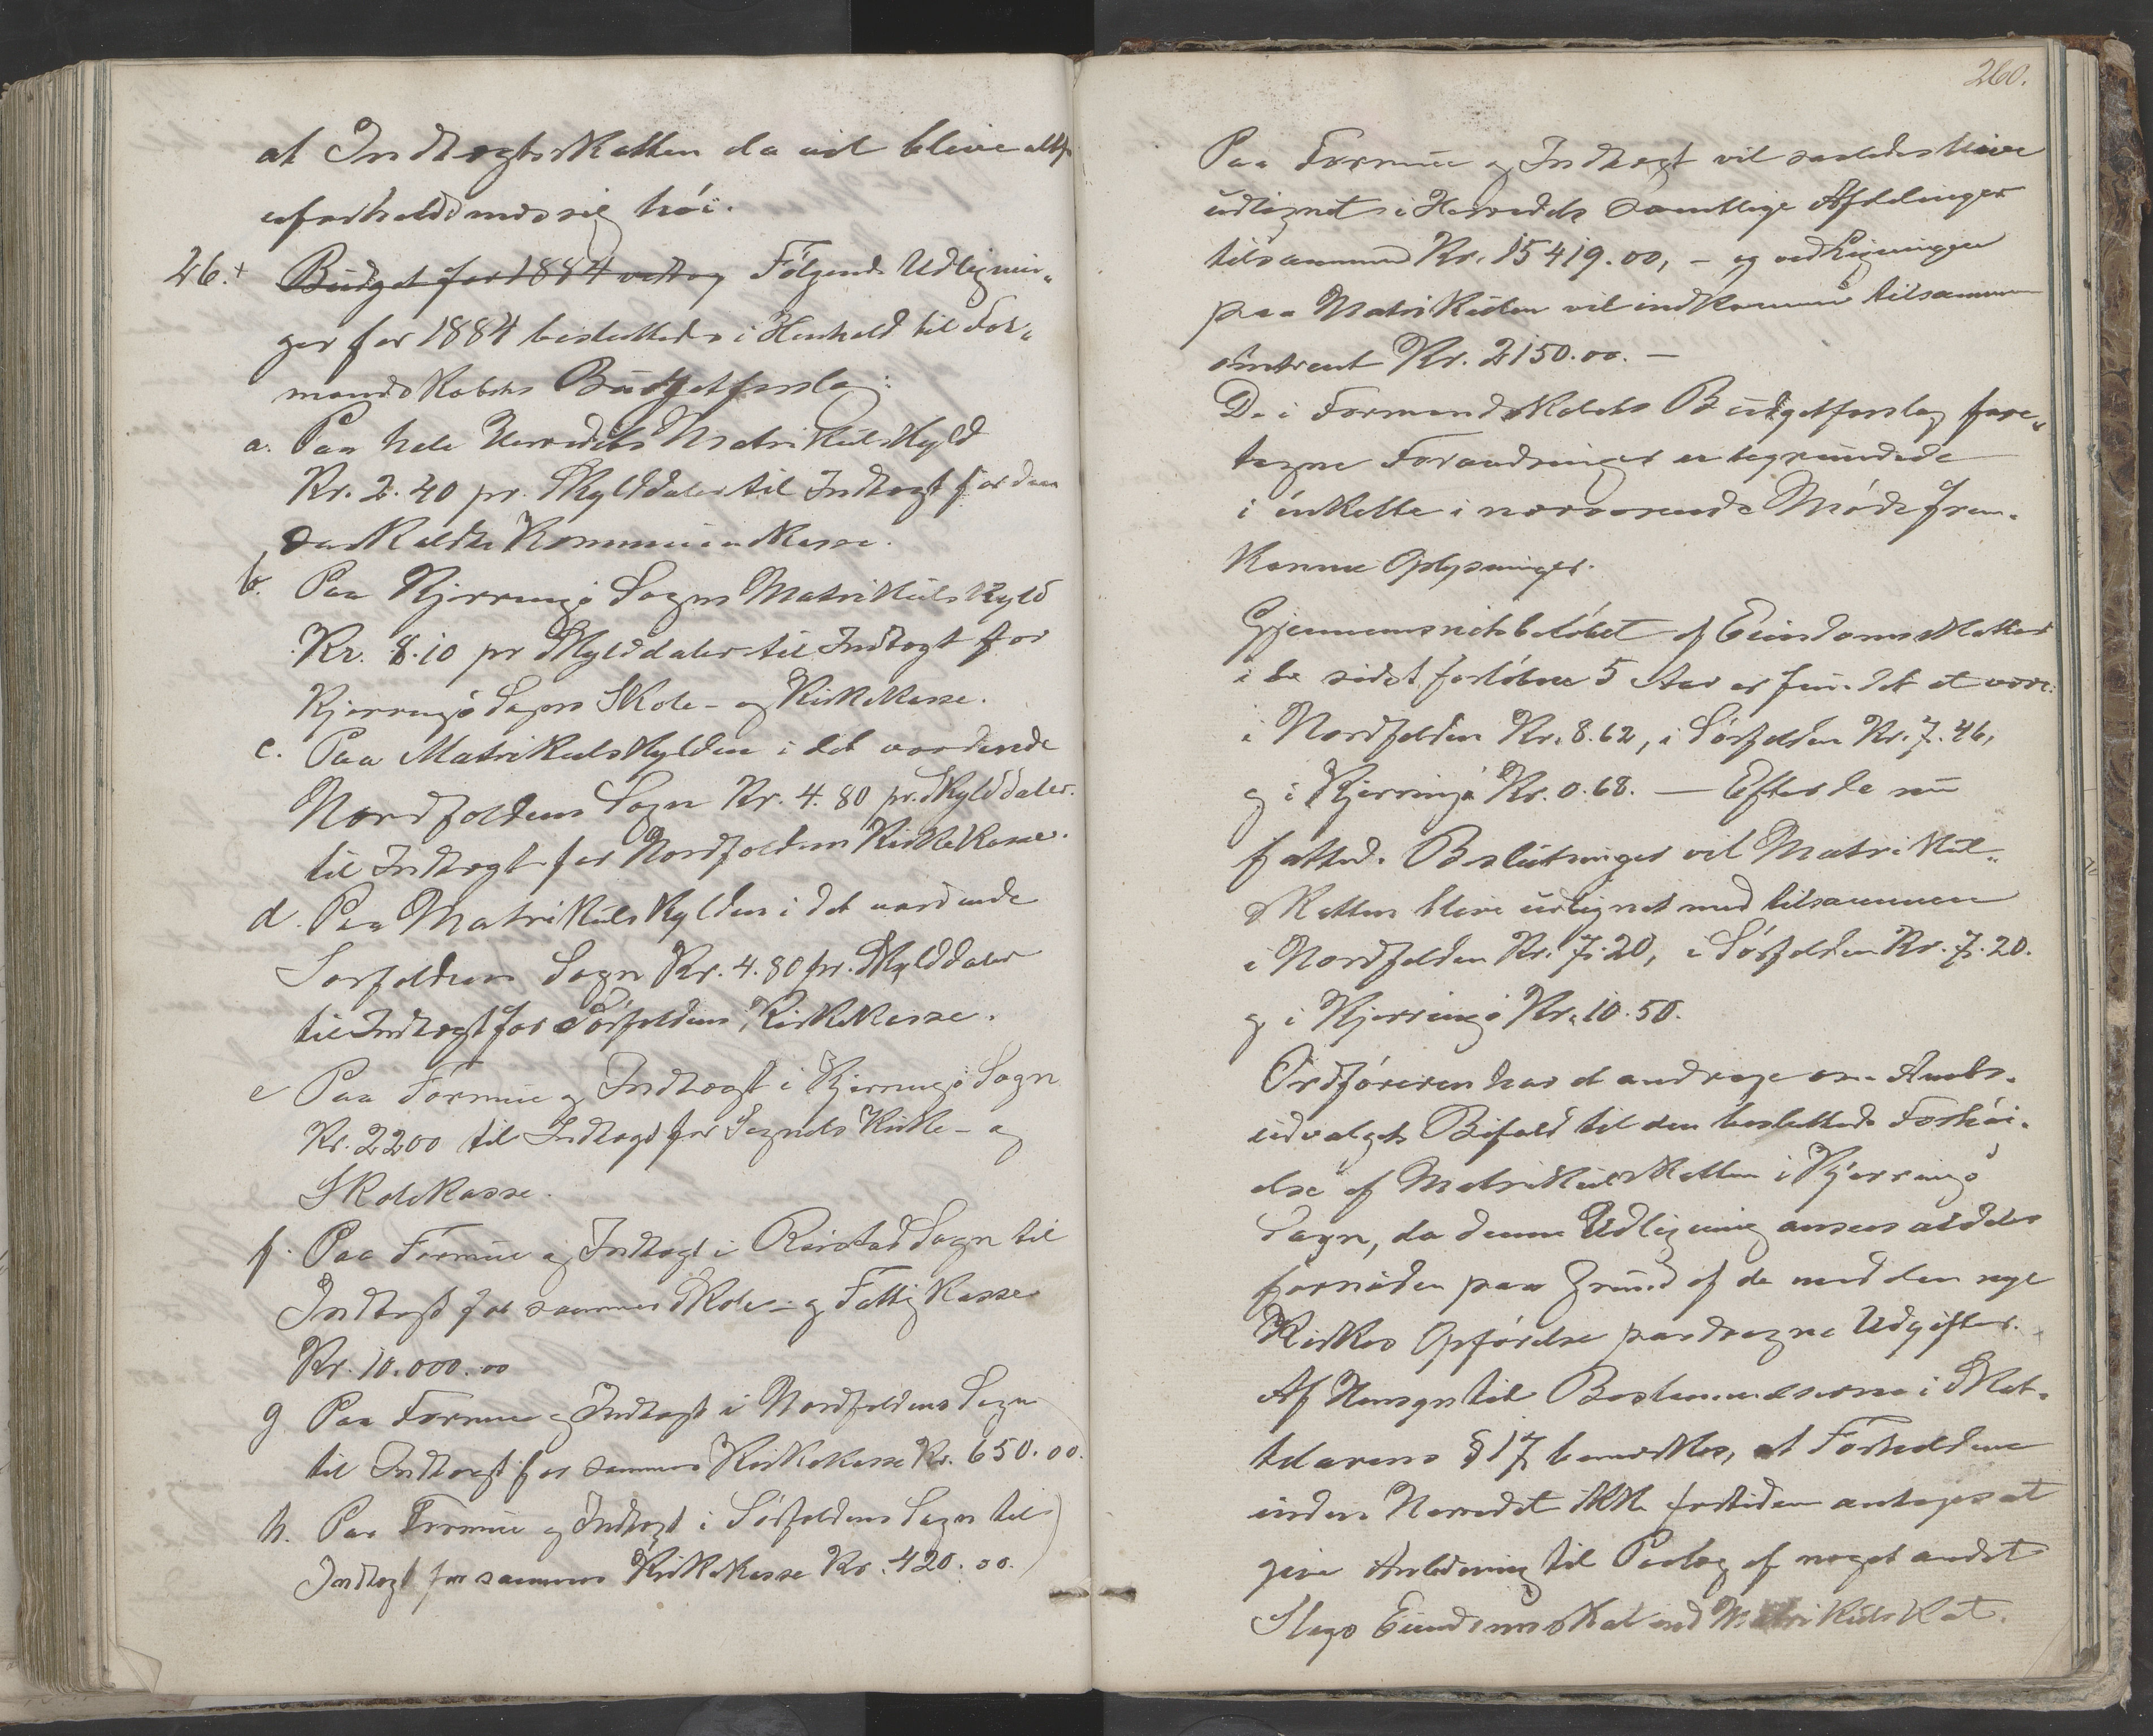 at Indtægtsskatten da vil blive altfor
uforholdsmæssig høi.
26.+ Budget for 1884 vedtog Følgende Udlignin„
ger for 1884 besluttedes i Henhold til For„
mandskabets Budgetforslag:
a. Paa hele Herredets Matrikulskyld
Kr. 2.40 pr. Skylddaler til Indtægt for den
saakaldte Kommunekasse.
b. Paa Kjerringø Sogns Matrikulskyld
Kr. 8.10 pr Skylddaler til Indtægt for
Kjerringø Sogns Skole- og Kirkekasse.
c. Paa Matrikulskylden i det vordende
Nordfoldens Sogn Kr. 4.80 pr. Skylddaler
til Indtægt for Nordfoldens Kirkekasse.
d. Paa Matrikulskylden i det vordende
Sørfoldens Sogn Kr. 4.80 pr. Skylddaler
til Indtægt for Sørfoldens Kirkekasse.
e Paa Formue og Indtægt i Kjerringø Sogn
Kr. 2200 til Indtægt for Sognets Kirke- og
Skolekasse.
f. Paa Formue og Indtægt i Rørstad Sogn til
Indtægt for sammes Skole- og Fattigkasse
Kr. 10.000.00
g Paa Formue og Indtægt i Nordfoldens Sogn
til Indtægt for sammes Kirkekasse Kr. 650.00.
h. Paa Formue og Indtægt i Sørfoldens Sogn til
Indtægt for sammes Kirkekasse Kr. 420.00.
260.
Paa Formue og Indtægt vil saaledes blive
udlignet i Herredets samtlige Afdelinger
tilsammen Kr. 15419.00, – og ved Ligningen
paa Matrikulen vil indkomme tilsammen
omtrent Kr. 2150.00. —
De i Formandskabets Budgetforslag fore„
tagne Forandringer er begrundede
i enkelte i nærværende Møde frem-
komne Oplysninger.
Gjennemsnitsbeløbet af Eiendomsskatten
i de sidst forløbne 5 Aar er fundet at være:
i Nordfolden Kr. 8.62, i Sørfolden Kr. 7.46,
og i Kjerringø Kr. 0.68. — Efter de nu
fattede Beslutninger vil Matrikul„
skatten blive udlignet med tilsammen
i Nordfolden Kr. 7.20, i Sørfolden Kr. 7.20.
og i Kjerringø Kr. 10.50.
Ordføreren har at andrage om Amts-
udvalgets Bifald til den besluttede Forhøi-
else af Matrikulskatten i Kjerringø
Sogn, da denne Udligning ansees aldeles
fornøden paa Grund af de med den nye
Kirkes Opførelse paadragne Udgifter.
Af Hensyn til Bestemmelserne i Skat-
telovens § 17 bemærkes, at Forholdene
inden Herredet ikke for tiden antages at
give Anledning til Paalæg af noget andet
Slags Eiendomsskat end Matrikulskat.